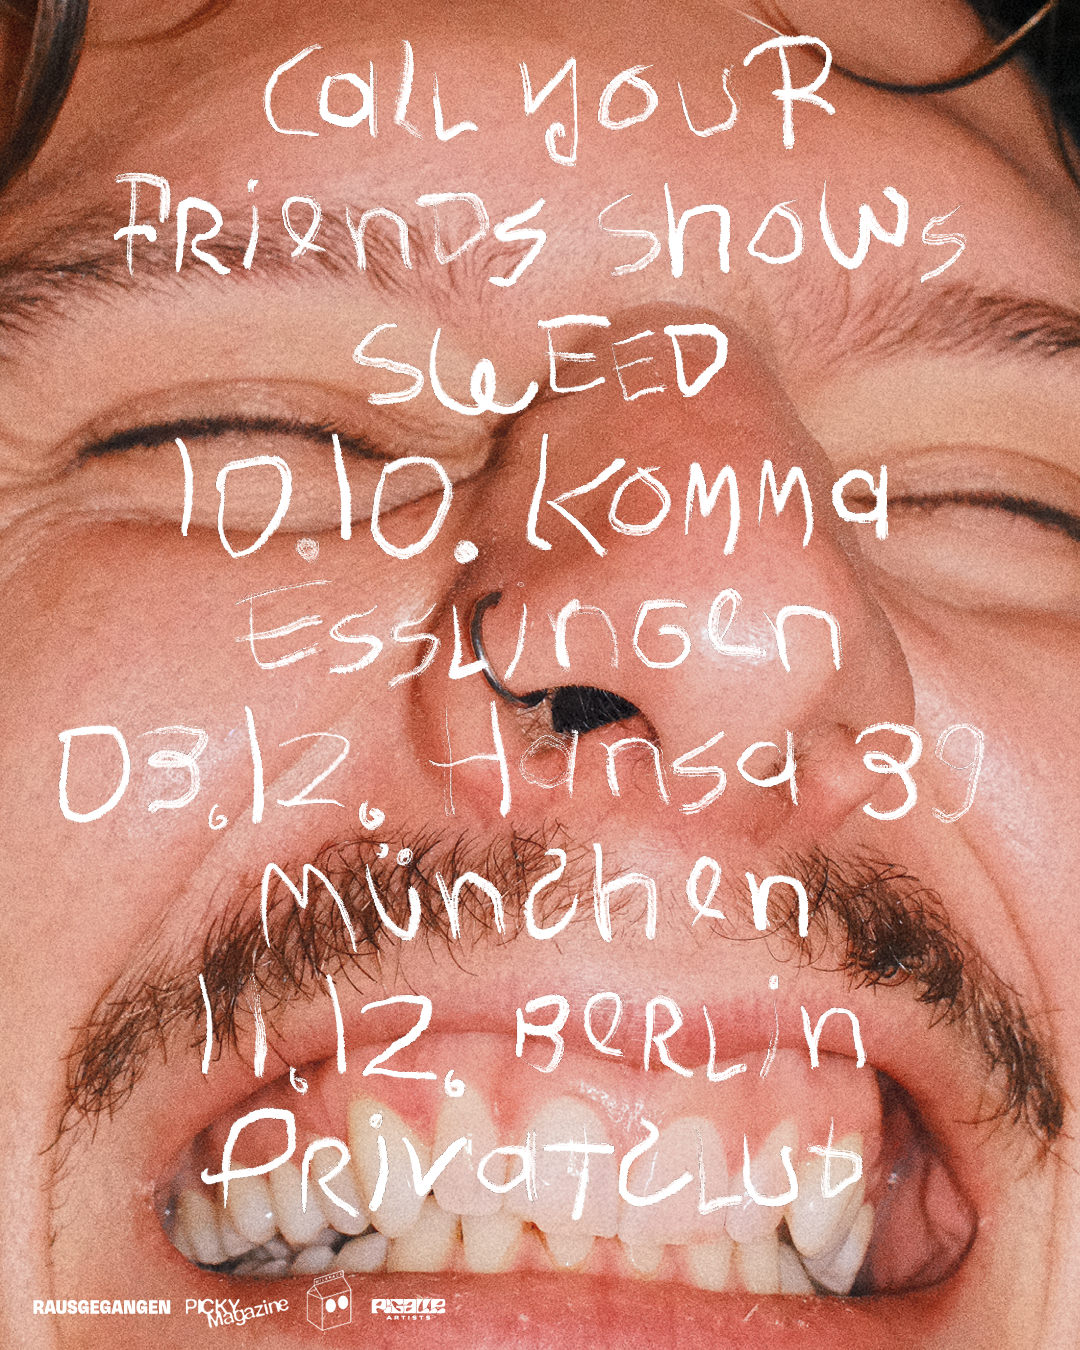 Call youR
FRienDs shows
SleEED
10.10. Komma
EssLinGen
03.12. Hansa 39
München
11.12. BeRLin
PRivaTcLub
RAUSGEGANGEN
PICKY Magazine
ARTISTS